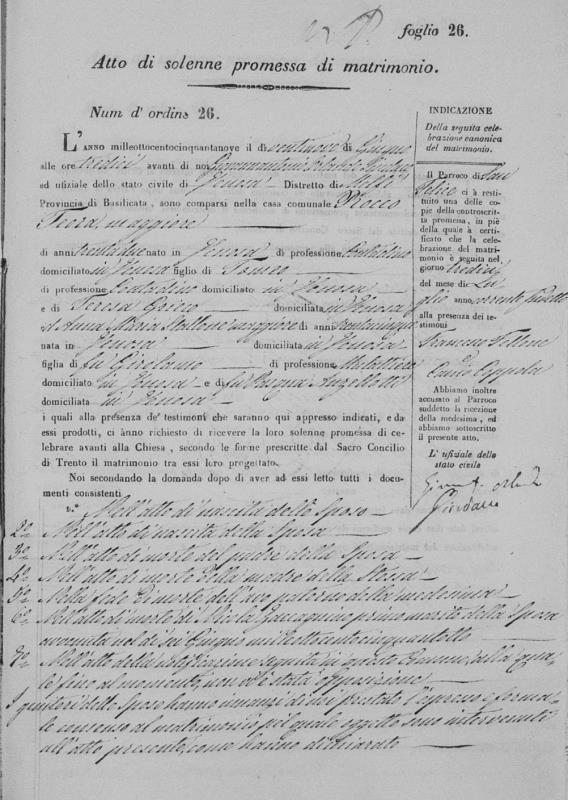 foglio 26.
Atto di solenne promessa di matrimonio.
Num d' ordine 26.
L'ANNO milleottocentocinquantanove il dì ventinove di Giugno
alle ore tredici avanti di noi Sindaco
ed ufiziale dello stato civile di Venosa Distretto di Melfi
Provincia di Basilicata, sono comparsi nella casa comunale Rocco
Fiora, maggiore
di anni trentadue nato in Venosa di professione Contadino
domiciliato in Venosa figlio di Tomeo
di professione Contadino domiciliato in Venosa
e di Teresa Grieco domiciliata in Venosa
ed Anna Maria Mollone maggiore di anni trentacinque
nata in Venosa domiciliata in Venosa
figlia di fu Girolamo di professione Mulattiere
domiciliato in Venosa e di fu Pasqua
domiciliata in Venosa
i quali alla presenza de' testimoni che saranno qui appresso indicati, e da
essi prodotti, ci ànno richiesto di ricevere la loro solenne promessa di ce-
lebrare avanti alla Chiesa, secondo le forme prescritte dal Sacro Concilio
di Trento il matrimonio tra essi loro progettato.
Noi secondando la domanda dopo di aver ad essi letto tutti i docu-
menti consistenti
1.º Nell'atto di nascita dello Sposo
2º Nell'atto di nascita della Sposa
3º Nell'atto di morte del padre della Sposa
4º Nell'atto di morte della madre della Stessa
5º Nella fede di morte dell'avo paterno della medesima
6º Nell'atto di morte di Nicola Zaccagnino primo marito della Sposa
avvenuta nel dì sei Giugno milleottocentocinquantotto
Nell'atto della notificazione seguita in questo Comune, alla qua-
le fino al momento, non vi è stata opposizione
I genitori dello Sposo hanno innanzi di noi prestato l'espresso e forma-
le consenso al matrimonio pel quale oggetto sono intervenuti
all'atto presente, come hanno dichiarato
INDICAZIONE
Della seguita cele-
brazione canonica
del matrimonio.
Il Parroco di San
Felice ci à resti-
tuito una delle co-
pie della controscrit-
ta promessa, in piè
della quale à certi-
ficato che la cele-
brazione del matri-
monio è seguita nel
giorno tredici
del mese di Lu
glio anno corrente
alla presenza dei te-
stimoni
Francesco
e
Coppola
Abbiamo inoltre
accusato al Parroco
suddetto la ricezione
della medesima, ed
abbiamo sottoscritto
il presente atto.
L' ufiziale dello
stato civile
Sindaco